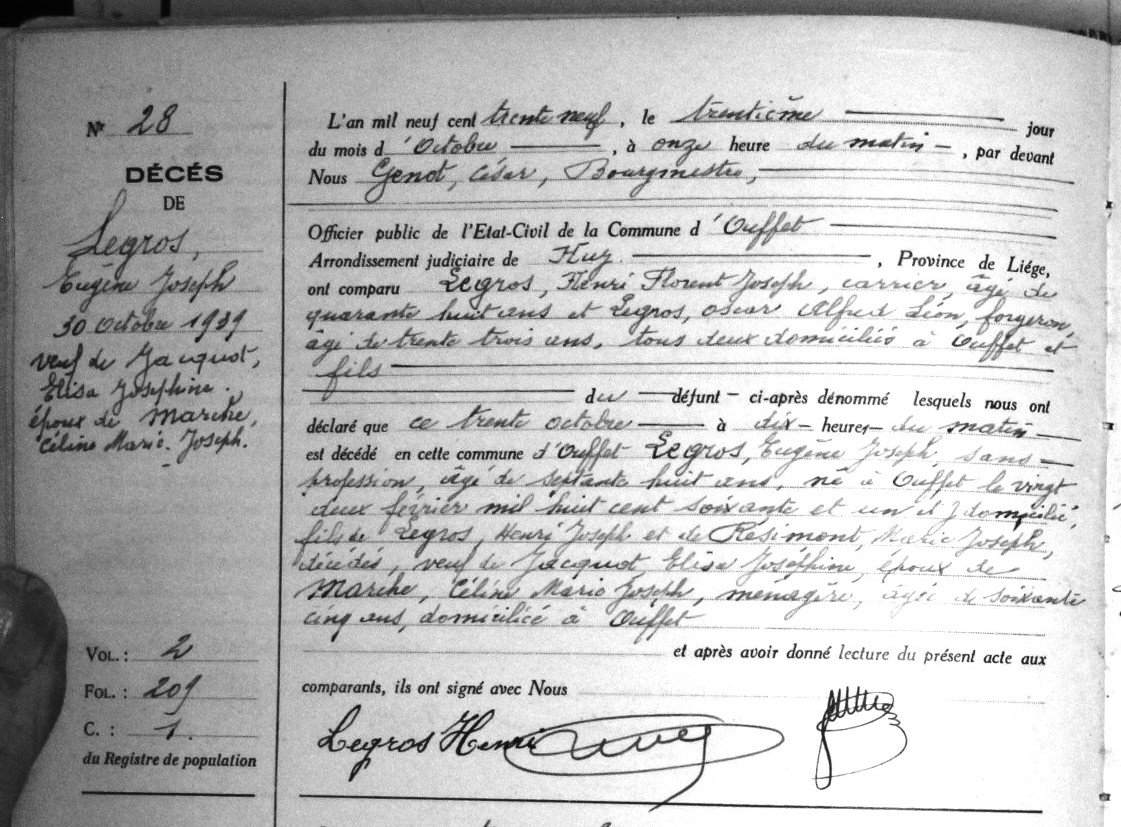 N° 28
DÉCÉS
DE
Legros,
Eugène Joseph
30 Octobre 1939
veuf de Jacquot,
Elisa Joséphine.
époux de Marche,
Céline Marie Joseph.
L'an mil neuf cent trente neuf, le trentième jour
du mois d'Octobre, à onze heure du matin, par devant
Nous Genot, César, Bourgmestre,
Officier public de l'Etat-Civil de la Commune d'Ouffet
Arrondissement judiciaire de Huy, Province de Liége,
ont comparu Legros, Henri Florent Joseph, carrier, âgé de
quarante huit ans et Legros, Oscar Alfred Léon, forgeron,
âgé de trente trois ans, tous deux domiciliés à Ouffet et
fils
du défunt ci-après dénommé lesquels nous ont
déclaré que ce trente octobre à dix heures du matin
est décédé en cette commune d'Ouffet Legros, Eugène Joseph, sans
profession, âgé de septante huit ans, né à Ouffet le vingt
deux février mil huit cent soixante et un et y domicilié,
fils de Legros, Henri Joseph et de Résimont, Marie Joseph,
décédés, veuf de Jacquot, Elisa Joséphine, époux de
Marche, Céline Marie Joseph, ménagère, âgée de soixante
cinq ans, domiciliée à Ouffet
et après avoir donné lecture du présent acte aux
comparants, ils ont signé avec Nous
Legros Henri
VOL. : 2
FOL. : 209
C. : 1.
du Registre de population